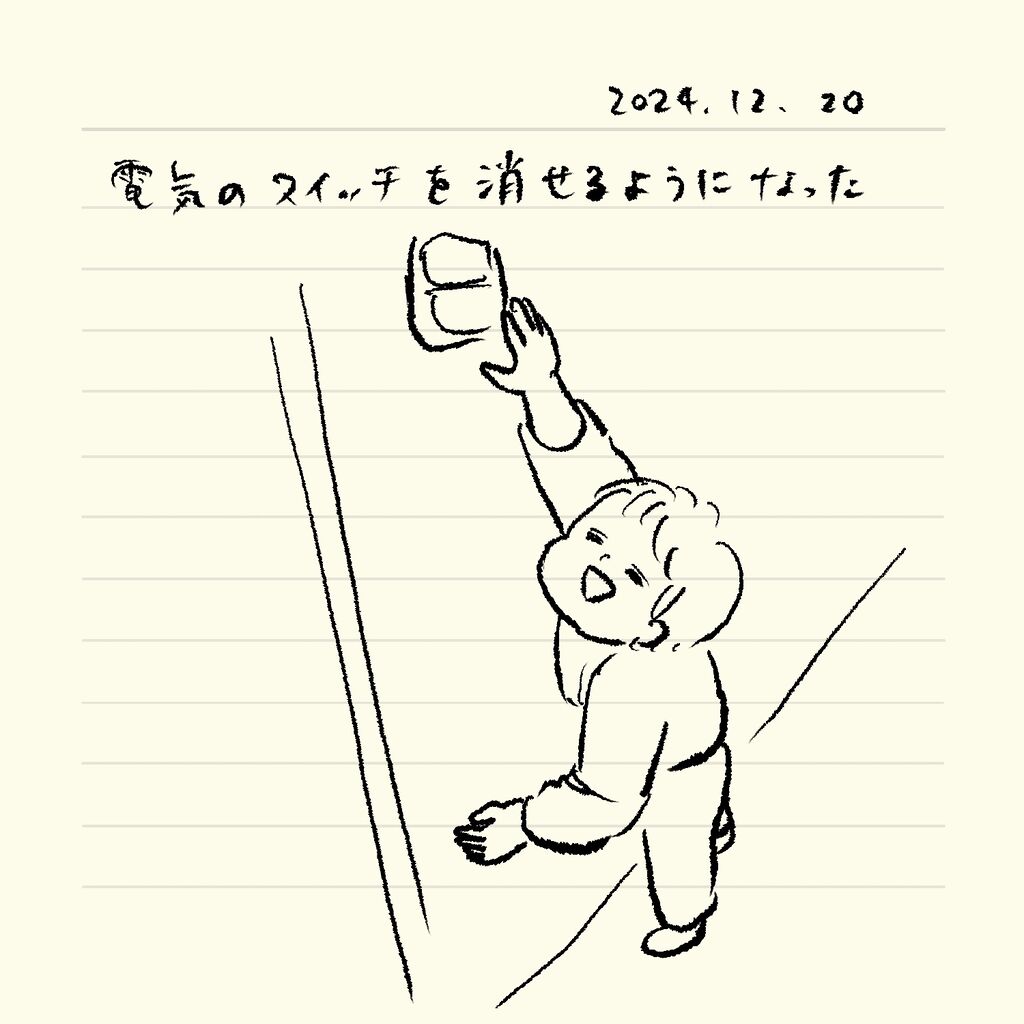 2024.12.20
電気のスイッチを消せるようになった